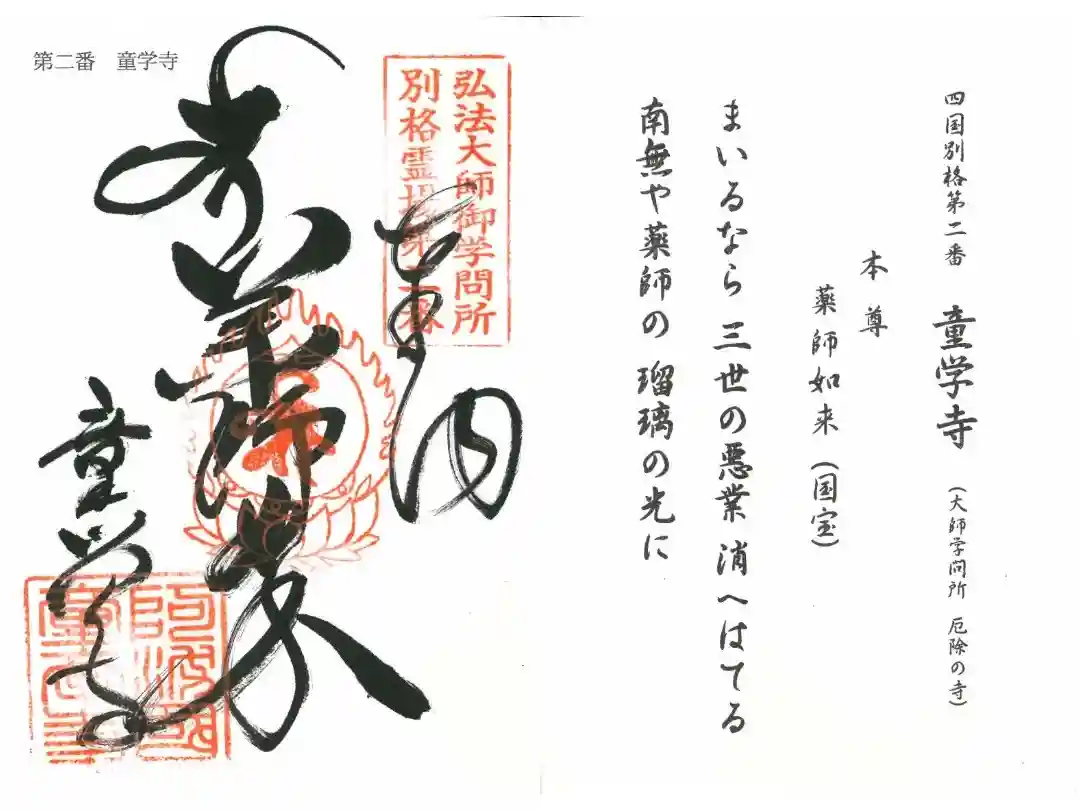 四国別格第二番　童学寺　(大師学問所　厄除の寺)
本尊
薬師如来 (国宝)
まいるなら 三世の悪業 消へはてる
南無や薬師の 瑠璃の光に
第二番　童学寺
弘法大師御学問所
別格霊場第二番
奉納
童学寺
阿波国
童学寺